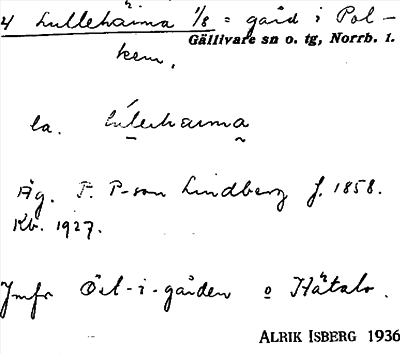 4 Lulleharma 1/8 = gård i Pol-
Gällivare sn o. tg, Norrb. l.
kem.
la.
Äg. F. P-son Lindberg f. 1858.
Kb. 1927.
Jmfr Öst-i-gården o
ALRIK ISBERG 1936